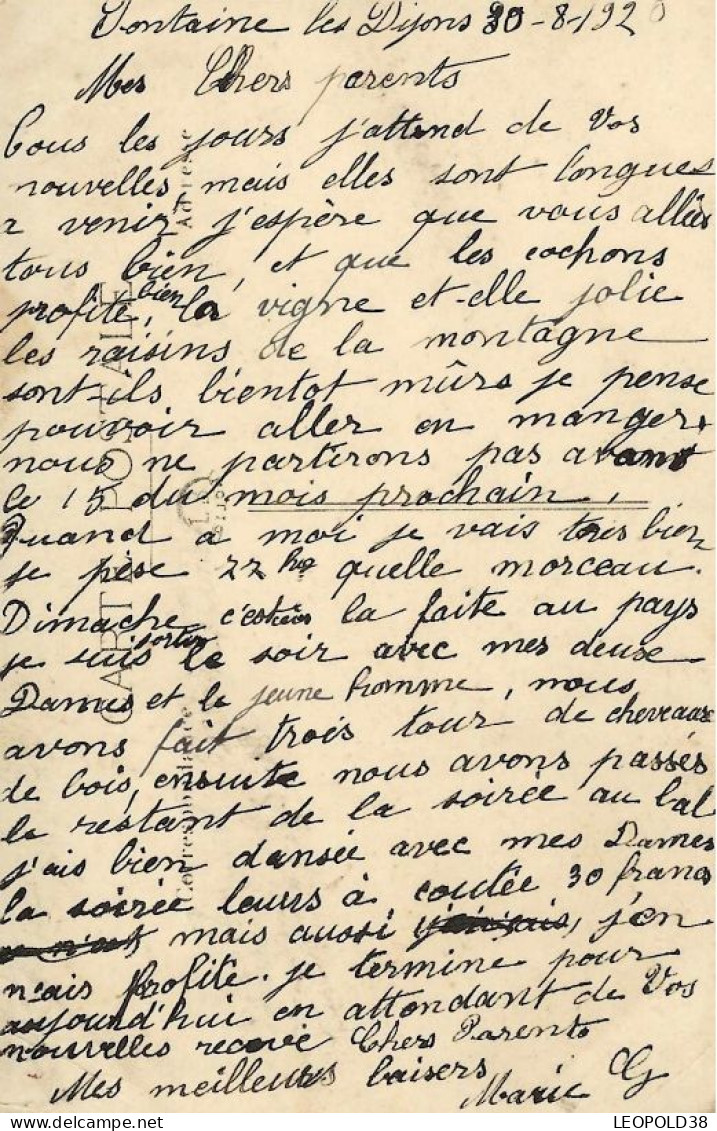 Fontaine les Dijons 30-8-1920
Mes Chers parents
Tous les jours j'attend de Vos
nouvelles, mais elles sont longues
a venir, j'espère que vous alliés
tous bien, et que les cochons
profite bien, la vigne et-elle jolie
les raisins de la montagne
sont-ils bientot mûrs je pense
pouvoir aller en manger,
nous ne partirons pas avant
le 15 du mois prochain,
Quand a moi je vais tres bien
je pèse 77 kg quelle morceau.
Dimache c'est la faite au pays
je suis sortir le soir avec mes deux
Dames et le jeune homme, nous
avons fait trois tour de cheveaux
de bois, ensuite nous avons passés
le restant de la soirée au bal
j'ais bien dansée avec mes Dames
la soirée leurs à coutée 30 francs
mais aussi j'en
n'ais profite. je termine pour
aujourd'hui en attendant de Vos
nouvelles recevé Chers Parents
Mes meilleurs baisers
Marie G
CARTE POSTALE
Correspondance
Adresse
LEOPOLD38